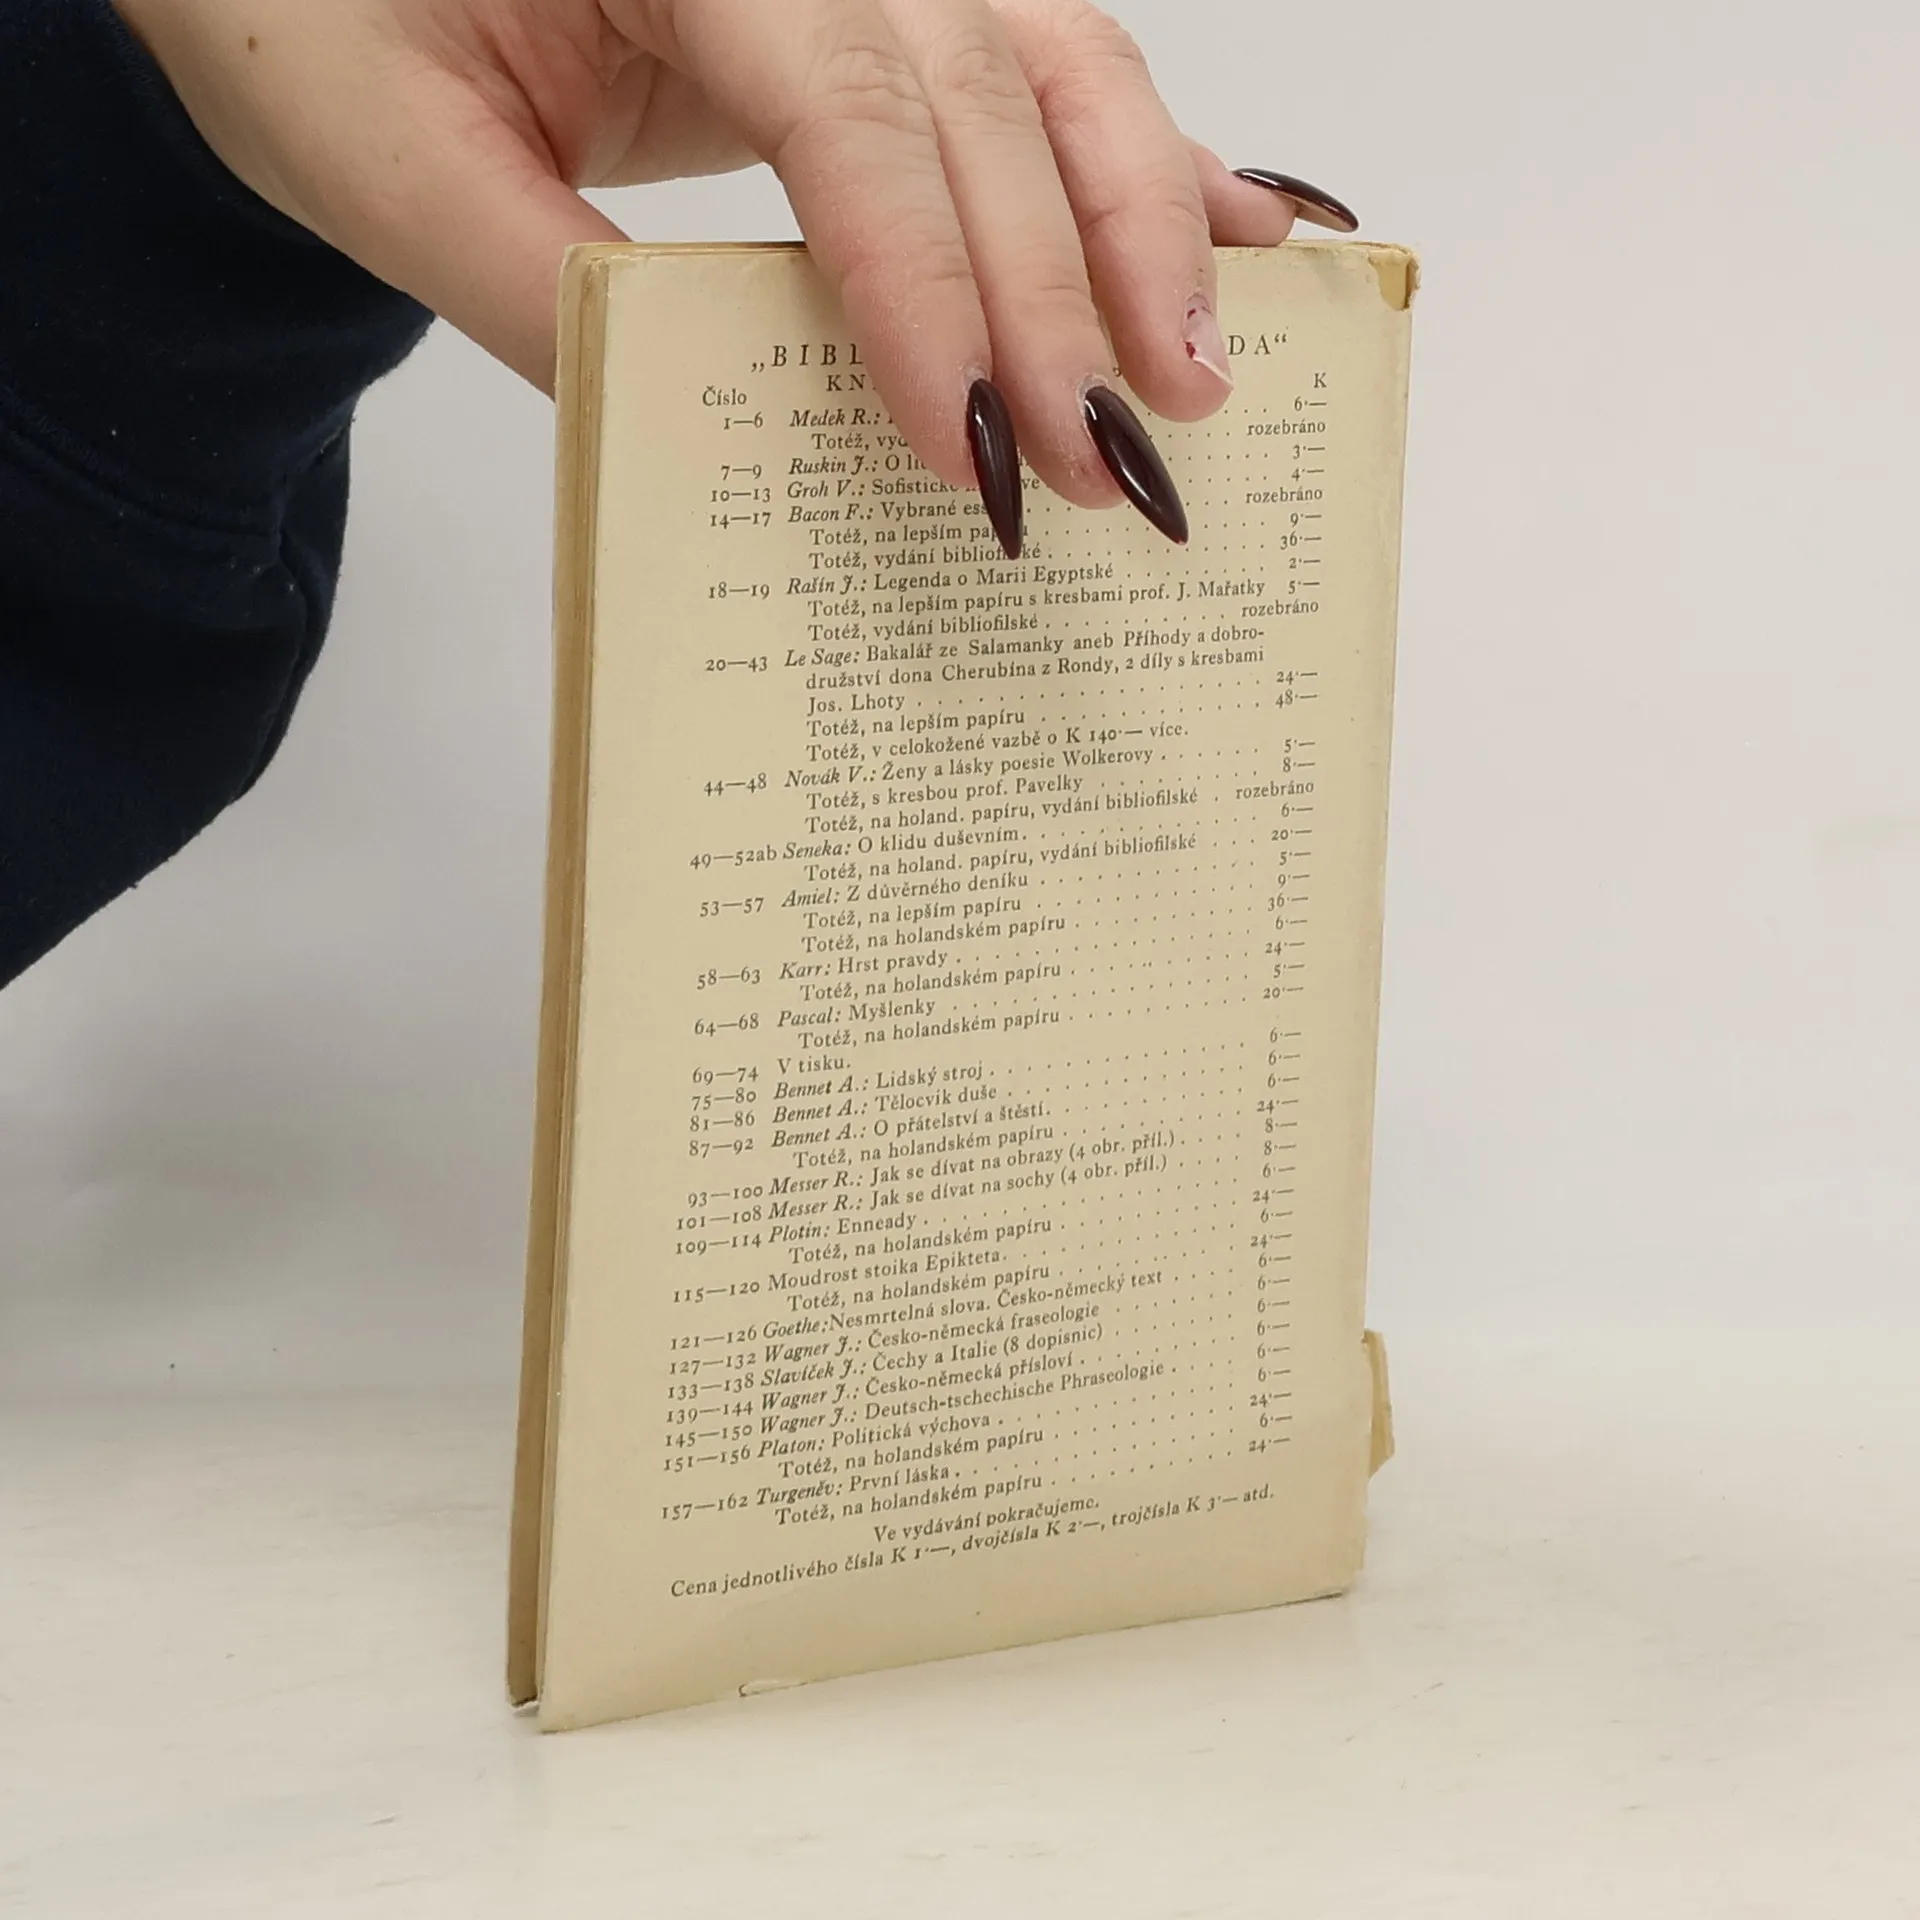 „BIBL DA“
KN
Číslo K
1—6 Medek R.: . . . . 6·—
Totéž, . . . . . rozebráno
7—9 Ruskin J.: O . . . . . . 3·—
10—13 Groh V.: . . . . . . 4·—
14—17 Bacon F.: Vybrané . . . . . . rozebráno
Totéž, na lepším . . . . . . . . . . 9·—
Totéž, vydání . . . . . . . . . . . 36·—
18—19 Rašín J.: Legenda o Marii Egyptské . . . . . . . 2·—
Totéž, na lepším papíru s kresbami prof. J. Mařatky 5·—
Totéž, vydání bibliofilské . . . . . . . . . . rozebráno
20—43 Le Sage: Bakalář ze Salamanky aneb Příhody a dobro-
družství dona Cherubína z Rondy, 2 díly s kresbami
Jos. Lhoty . . . . . . . . . . . . . . . . 24·—
Totéž, na lepším papíru . . . . . . . . . . . 48·—
Totéž, v celokožené vazbě o K 140·— více.
44—48 Novák V.: Ženy a lásky poesie Wolkerovy . . . . . . 5·—
Totéž, s kresbou prof. Pavelky . . . . . . . . 8·—
Totéž, na holand. papíru, vydání bibliofilské . rozebráno
49—52ab Seneka: O klidu duševním. . . . . . . . . . . 6·—
Totéž, na holand. papíru, vydání bibliofilské . . . 20·—
53—57 Amiel: Z důvěrného deníku . . . . . . . . . . . 5·—
Totéž, na lepším papíru . . . . . . . . . . . 9·—
Totéž, na holandském papíru . . . . . . . . . 36·—
58—63 Karr: Hrst pravdy . . . . . . . . . . . . . . 6·—
Totéž, na holandském papíru . . . . . . . . . 24·—
64—68 Pascal: Myšlenky . . . . . . . . . . . . . . . 5·—
Totéž, na holandském papíru . . . . . . . . . 20·—
69—74 V tisku.
75—80 Bennet A.: Lidský stroj . . . . . . . . . . . . 6·—
81—86 Bennet A.: Tělocvik duše . . . . . . . . . . . 6·—
87—92 Bennet A.: O přátelství a štěstí. . . . . . . . . . 6·—
Totéž, na holandském papíru . . . . . . . . . 24·—
93—100 Messer R.: Jak se dívat na obrazy (4 obr. příl.) . . . . 8·—
101—108 Messer R.: Jak se dívat na sochy (4 obr. příl.) . . . . 8·—
109—114 Plotin: Enneady . . . . . . . . . . . . . . . 6·—
Totéž, na holandském papíru . . . . . . . . . 24·—
115—120 Moudrost stoika Epikteta. . . . . . . . . . . . 6·—
Totéž, na holandském papíru . . . . . . . . . 24·—
121—126 Goethe: Nesmrtelná slova. Česko-německý text . . . . 6·—
127—132 Wagner J.: Česko-německá fraseologie . . . . . . . 6·—
133—138 Slavíček J.: Čechy a Italie (8 dopisnic) . . . . . . . 6·—
139—144 Wagner J.: Česko-německá přísloví . . . . . . . . 6·—
145—150 Wagner J.: Deutsch-tschechische Phraseologie . . . . 6·—
151—156 Platon: Politická výchova . . . . . . . . . . . . 6·—
Totéž, na holandském papíru . . . . . . . . . 24·—
157—162 Turgeněv: První láska . . . . . . . . . . . . . . 6·—
Totéž, na holandském papíru . . . . . . . . . 24·—
Ve vydávání pokračujeme.
Cena jednotlivého čísla K 1·—, dvojčísla K 2·—, trojčísla K 3·— atd.